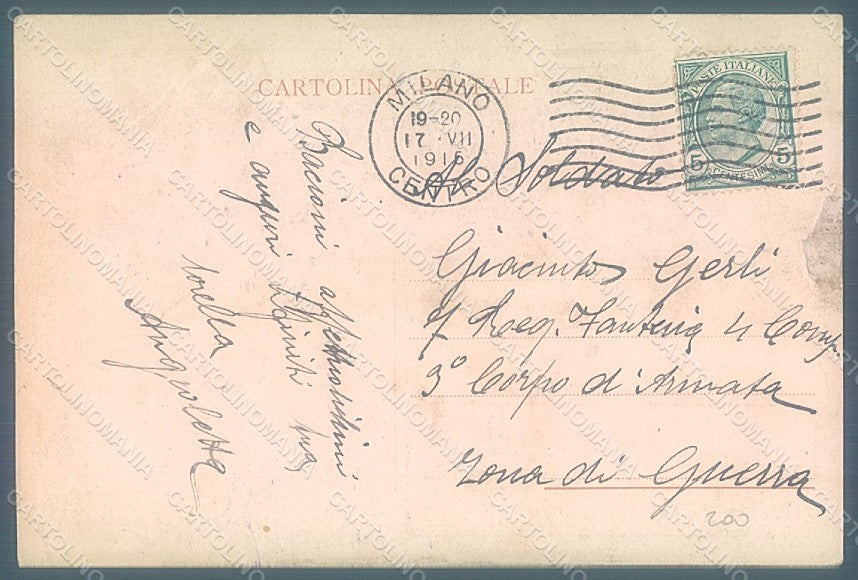 CARTOLINA POSTALE
MILANO
19-20
17 · VII
1915
CENTRO
POSTE ITALIANE
5 5
CENTESIMI
Al Soldato
Giacinto Gerli
7 Reg. Fanteria 4 Comp.
3° Corpo d'Armata
Zona di Guerra
200
Bacioni affettuosissimi
e auguri infiniti tua
sorella
Angioletta
CARTOLINOMANIA